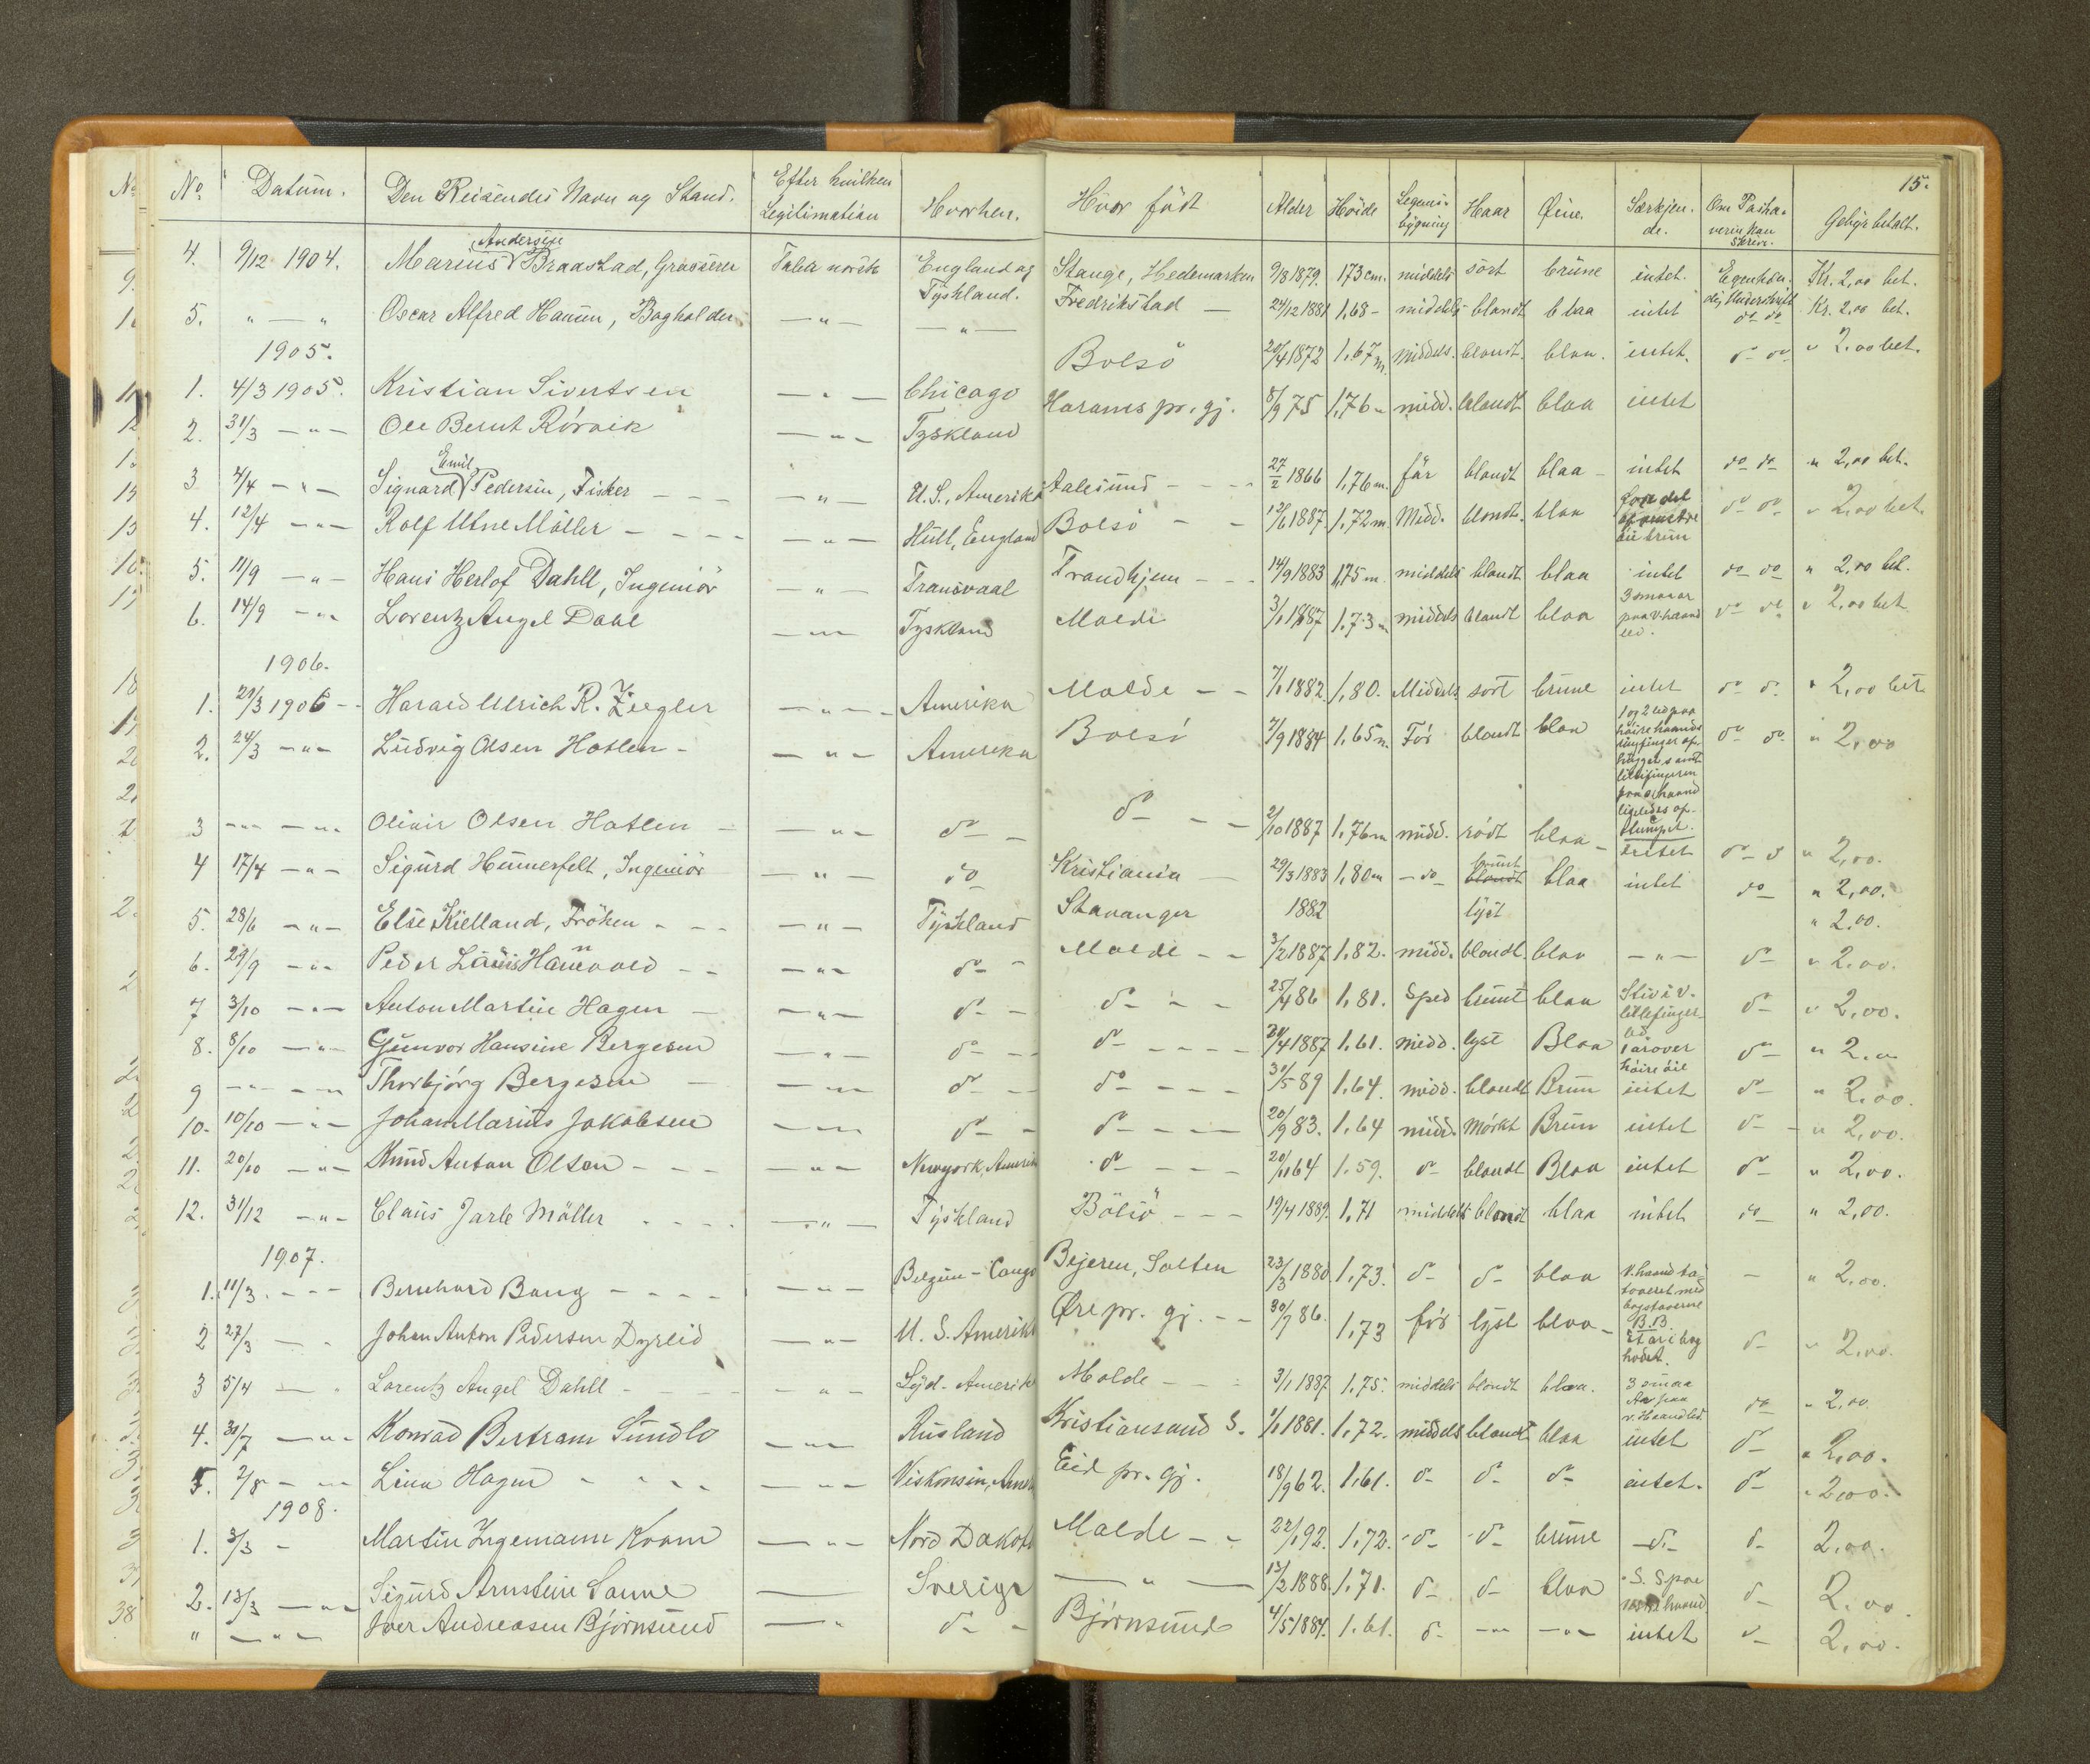 No. Datum. Den Reisendes Navn og Stand. Efter hvilken Legitimation Hvorhen. Hvor født Alder Høide Legems-bygning Haar Øine. Særkjen-de. Om Pasha-veren kan skrive. Gebyr betalt. 15.
4. 9/12 1904. Marius Andersen Braastad, Grosserer Taler norsk England og Tyskland. Stange, Hedemarken 9/8 1879. 173 cm. middels sort brune intet. Egenhæn-dig Underskrift Kr. 2,00 bet.
5. " — " Oscar Alfred Hansen, Bogholder — " — — " — Fredrikstad — 24/12 1881 1,68 - middels blondt blaa intet do do Kr. 2,00 bet.
1905.
1. 4/3 1905. Kristian Sivertsen — " — Chicago Bolsö 20/4 1872 1,67 m. middels. blondt. blaa. intet. do do " 2.00 bet.
2. 31/3 — " — Ole Bernt Rörvik — " — Tyskland Harams pr. gj. 8/9 75 1,76 " midd. blondt blaa intet
3 4/4 — " — Sigvard Emil Pedersen, Fisker — — — " — U.S., Amerika Aalesund — — 27/2 1866 1,76 m. før blondt blaa — intet do do " 2,00 bet.
4. 12/4 — " — Rolf Utne Möller — — — — " — Hull, England Bolsö — — 12/6 1887. 1,72 m. Midd. blondt. blaa do do " 2,00 bet.
5. 11/9 — " — Hans Herlof Dahll, Ingeniör — " — Transvaal Trondhjem — — 14/9 1883 1,75 m. middels blondt blaa intet do do " 2,00 bet.
6. 14/9 — " Lorentz Angel Dahl — " — Tyskland Molde 3/1 1887 1,73 m middels blondt blaa 3 smaa ar paa v. haand led. do do " 2,00 bet
1906.
1. 21/3 1906 — Harald Ulrich R. Ziegler — " — Amerika Molde — — 7/1 1882. 1,80. Middels sort brune intet do do " 2,00 bet
2. 24/3 — " — Ludvig Olsen Hatlen — — " — Amerika Bolsö 7/9 1884 1,65 m. Før blondt blaa 1 og 2 led paa høire haands ringfinger af-hugget samt lillefingeren paa haand ligeledes af-stumpet. do do " 2,00
3 — " — — " — Olivir Olsen Hatlen — — " — do — do — — 2/10 1887 1,76 m midd. rödt blaa — intet do " 2,00.
4 17/4 — " — Sigurd Hunnerfelt, Ingeniör — " — do Kristiania — 29/3 1883 1,80 m — do — brunt blondt blaa intet do " 2,00.
5. 28/6 — " — Else Kielland, Fröken — — — " — Tyskland Stavanger 1882 lyst " 2,00.
6. 29/9 — " — Peder Hannevold — — — " — do — Molde — — 3/2 1887 1,82. midd. blondt. blaa — " — do " 2,00.
7 3/10 — " — Anton Martin Hagen — — " — do — do — — — 25/4 86 1,81. Sped brunt blaa Stiv i v. lillefinger-led. do " 2,00.
8. 8/10 — " — Gunvor Hansine Bergesen — " — do — do — — — 24/4 1887 1,61. midd. lyst Blaa 1 ar over høire øie do " 2.00
9 — " — — " — Thorbjörg Bergesen — — " — do — do — — — 31/5 89 1,64. midd. blondt Brun intet do " 2,00.
10. 10/10 — " — Johan Marius Jakobsen — " — do — do — — — 20/9 83. 1,64 midd. Mörkt Brun intet do — " 2,00.
11. 20/10 — " — Knud Anton Olsen — — — — " — Newyork, Amerika do — — — 20/1 64 1,59. do blondt Blaa intet do " 2,00.
12. 31/12 — " — Claus Jarle Möller — — — " — Tyskland Bolsö — — — 19/4 1889. 1,71 middels blondt blaa intet do " 2,00.
1907.
1. 11/3. — — — Bernhard Bang — — — — — " — Belgien - Congo Bejeren, Salten 23/3 1880. 1,73. do do blaa V. haand ta-toveret med bogstaverne B. B. — " 2,00.
2 27/3 — " Johan Anton Pedersen Dyrlid — " — U. S. Amerika Øre pr. gj. — — 30/7 86. 1,73 før lyst blaa — Et ar i bag hodet. do " 2,00.
3 5/4 — " Lorentz Angel Dahll — — — — " — Syd - Amerika Molde — — 3/1 1887 1,75. middels blondt blaa. 3 smaa Ar paa v. Haandled. do " 2,00
4. 30/7 — " — Konrad Bertram Sundlo — " — Rusland Kristiansand S. 1/1 1881. 1,72. middels blondt blaa intet do " 2,00.
5. 2/8 — " — Lina Hagen — — — — " — Viskonsin, Amerika Eid pr. gj. 18/9 62. 1,61. do do do intet. do " 2,00.
1908.
1. 3/3 — Martin Ingemann Kvam — " — Nord Dakota Molde — — 22/1 92. 1,72. do do brune — do — do 2,00.
2. 13/3 — " — Sigurd Arnstein Sanne — Sverige — " — 12/2 1888. 1,71. do do blaa do 2.00.
" — " — Iver Andreasen Björnsund — " do — Björnsund 4/5 1884. 1.61. do — " — — " — intet do 2,00.